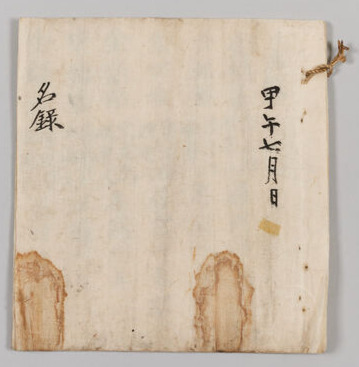 甲午七月日
名錄